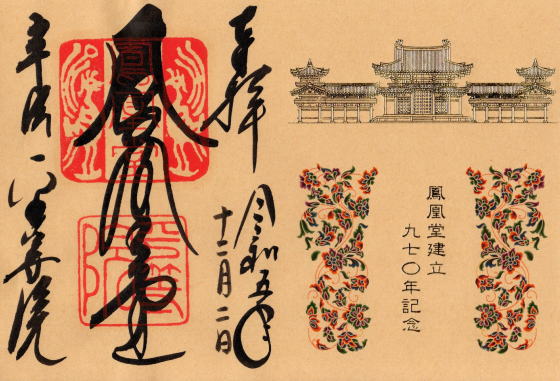 鳳凰堂建立
九七〇年記念
奉拝
令和五年
十二月二日
鳳凰堂
平等院